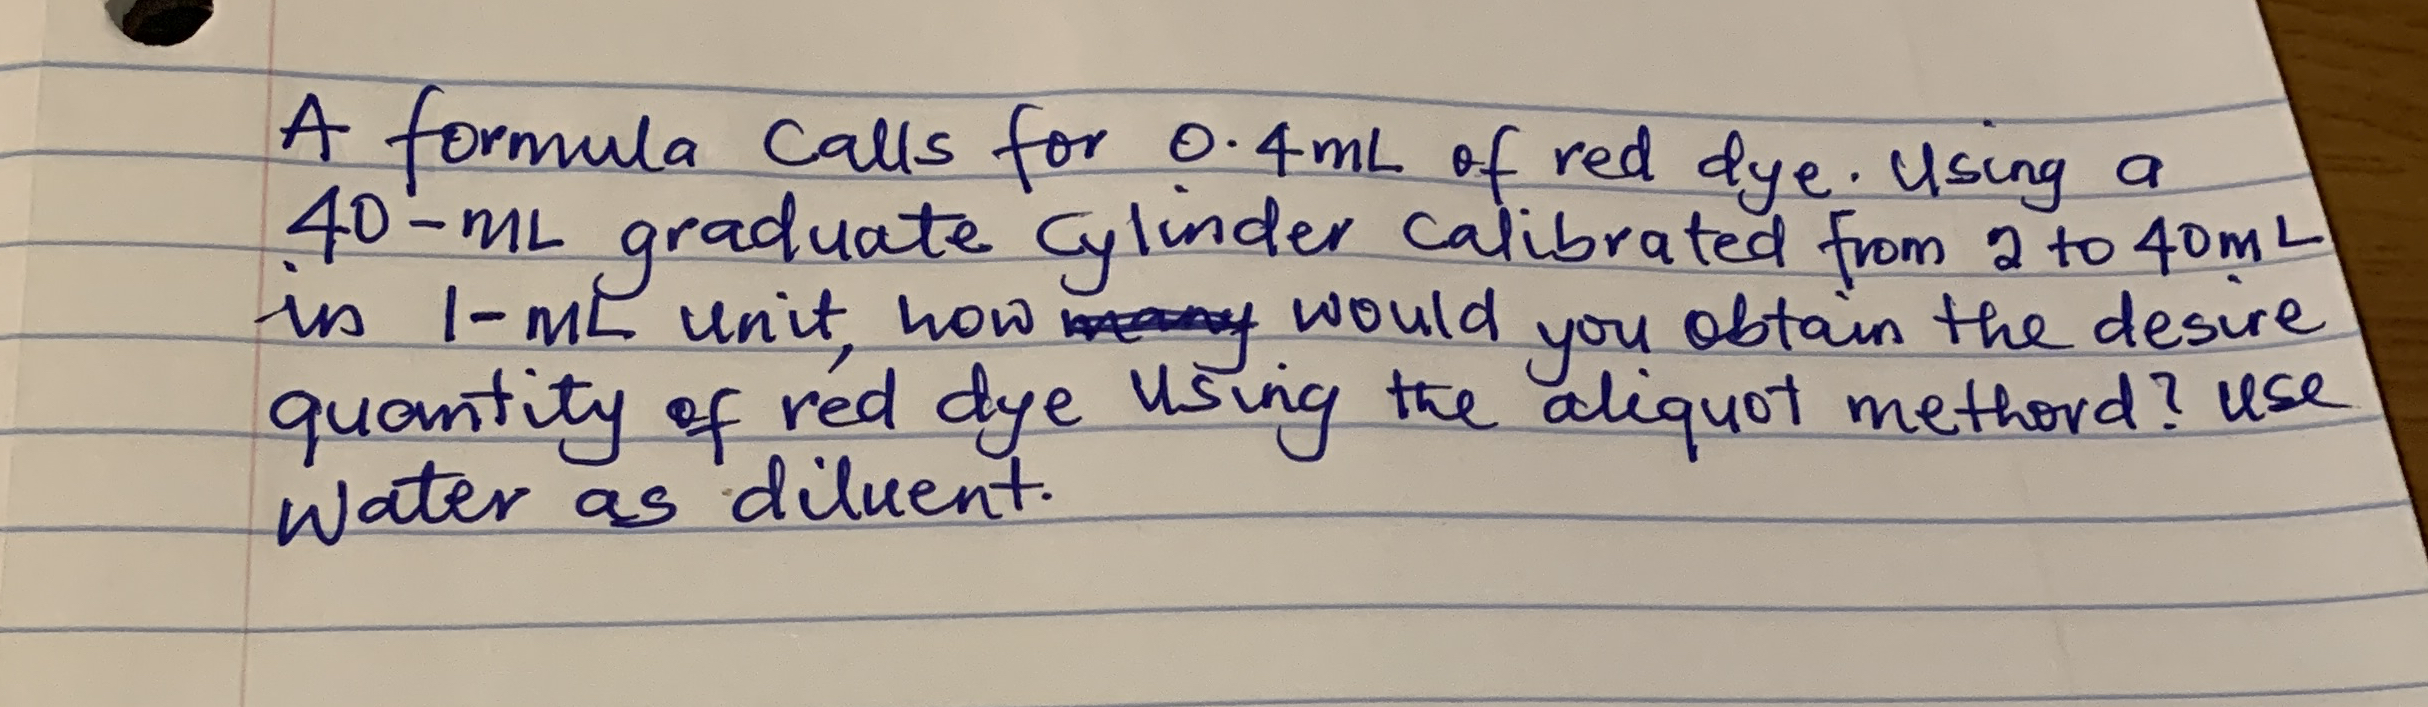 A formula calls for 0.4mL of red dye. Using a
40-mL graduate cylinder calibrated from 2 to 40mL
in 1-mL unit, how would you obtain the desire
quantity of red dye using the aliquot methord? use
water as diluent.